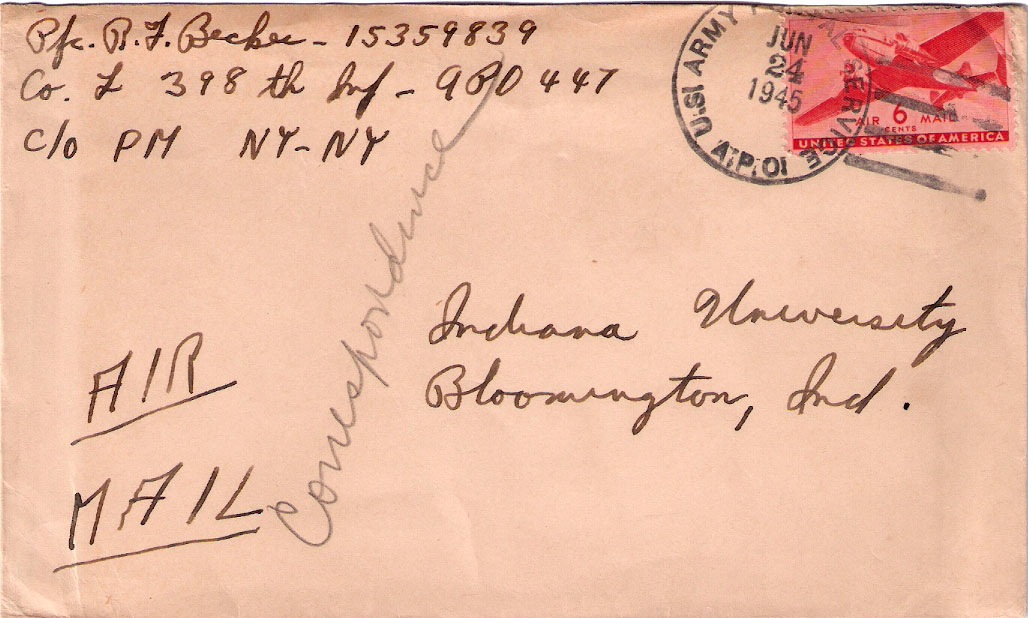 Pfc. R. F. Becker - 15359839
Co. L 398 th Inf - APO 447
c/o PM NY-NY
U.S. ARMY POSTAL SERVICE
A.P.O.
JUN
24
1945
AIR 6 MAIL
CENTS
UNITED STATES OF AMERICA
Correspondence
Indiana University
Bloomington, Ind.
AIR
MAIL